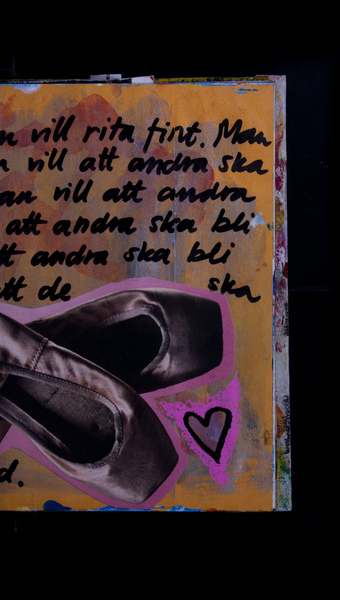 n vill rita fint. Man
n vill att andra ska
an vill att andra
att andra ska bli
tt andra ska bli
tt de ska
d.